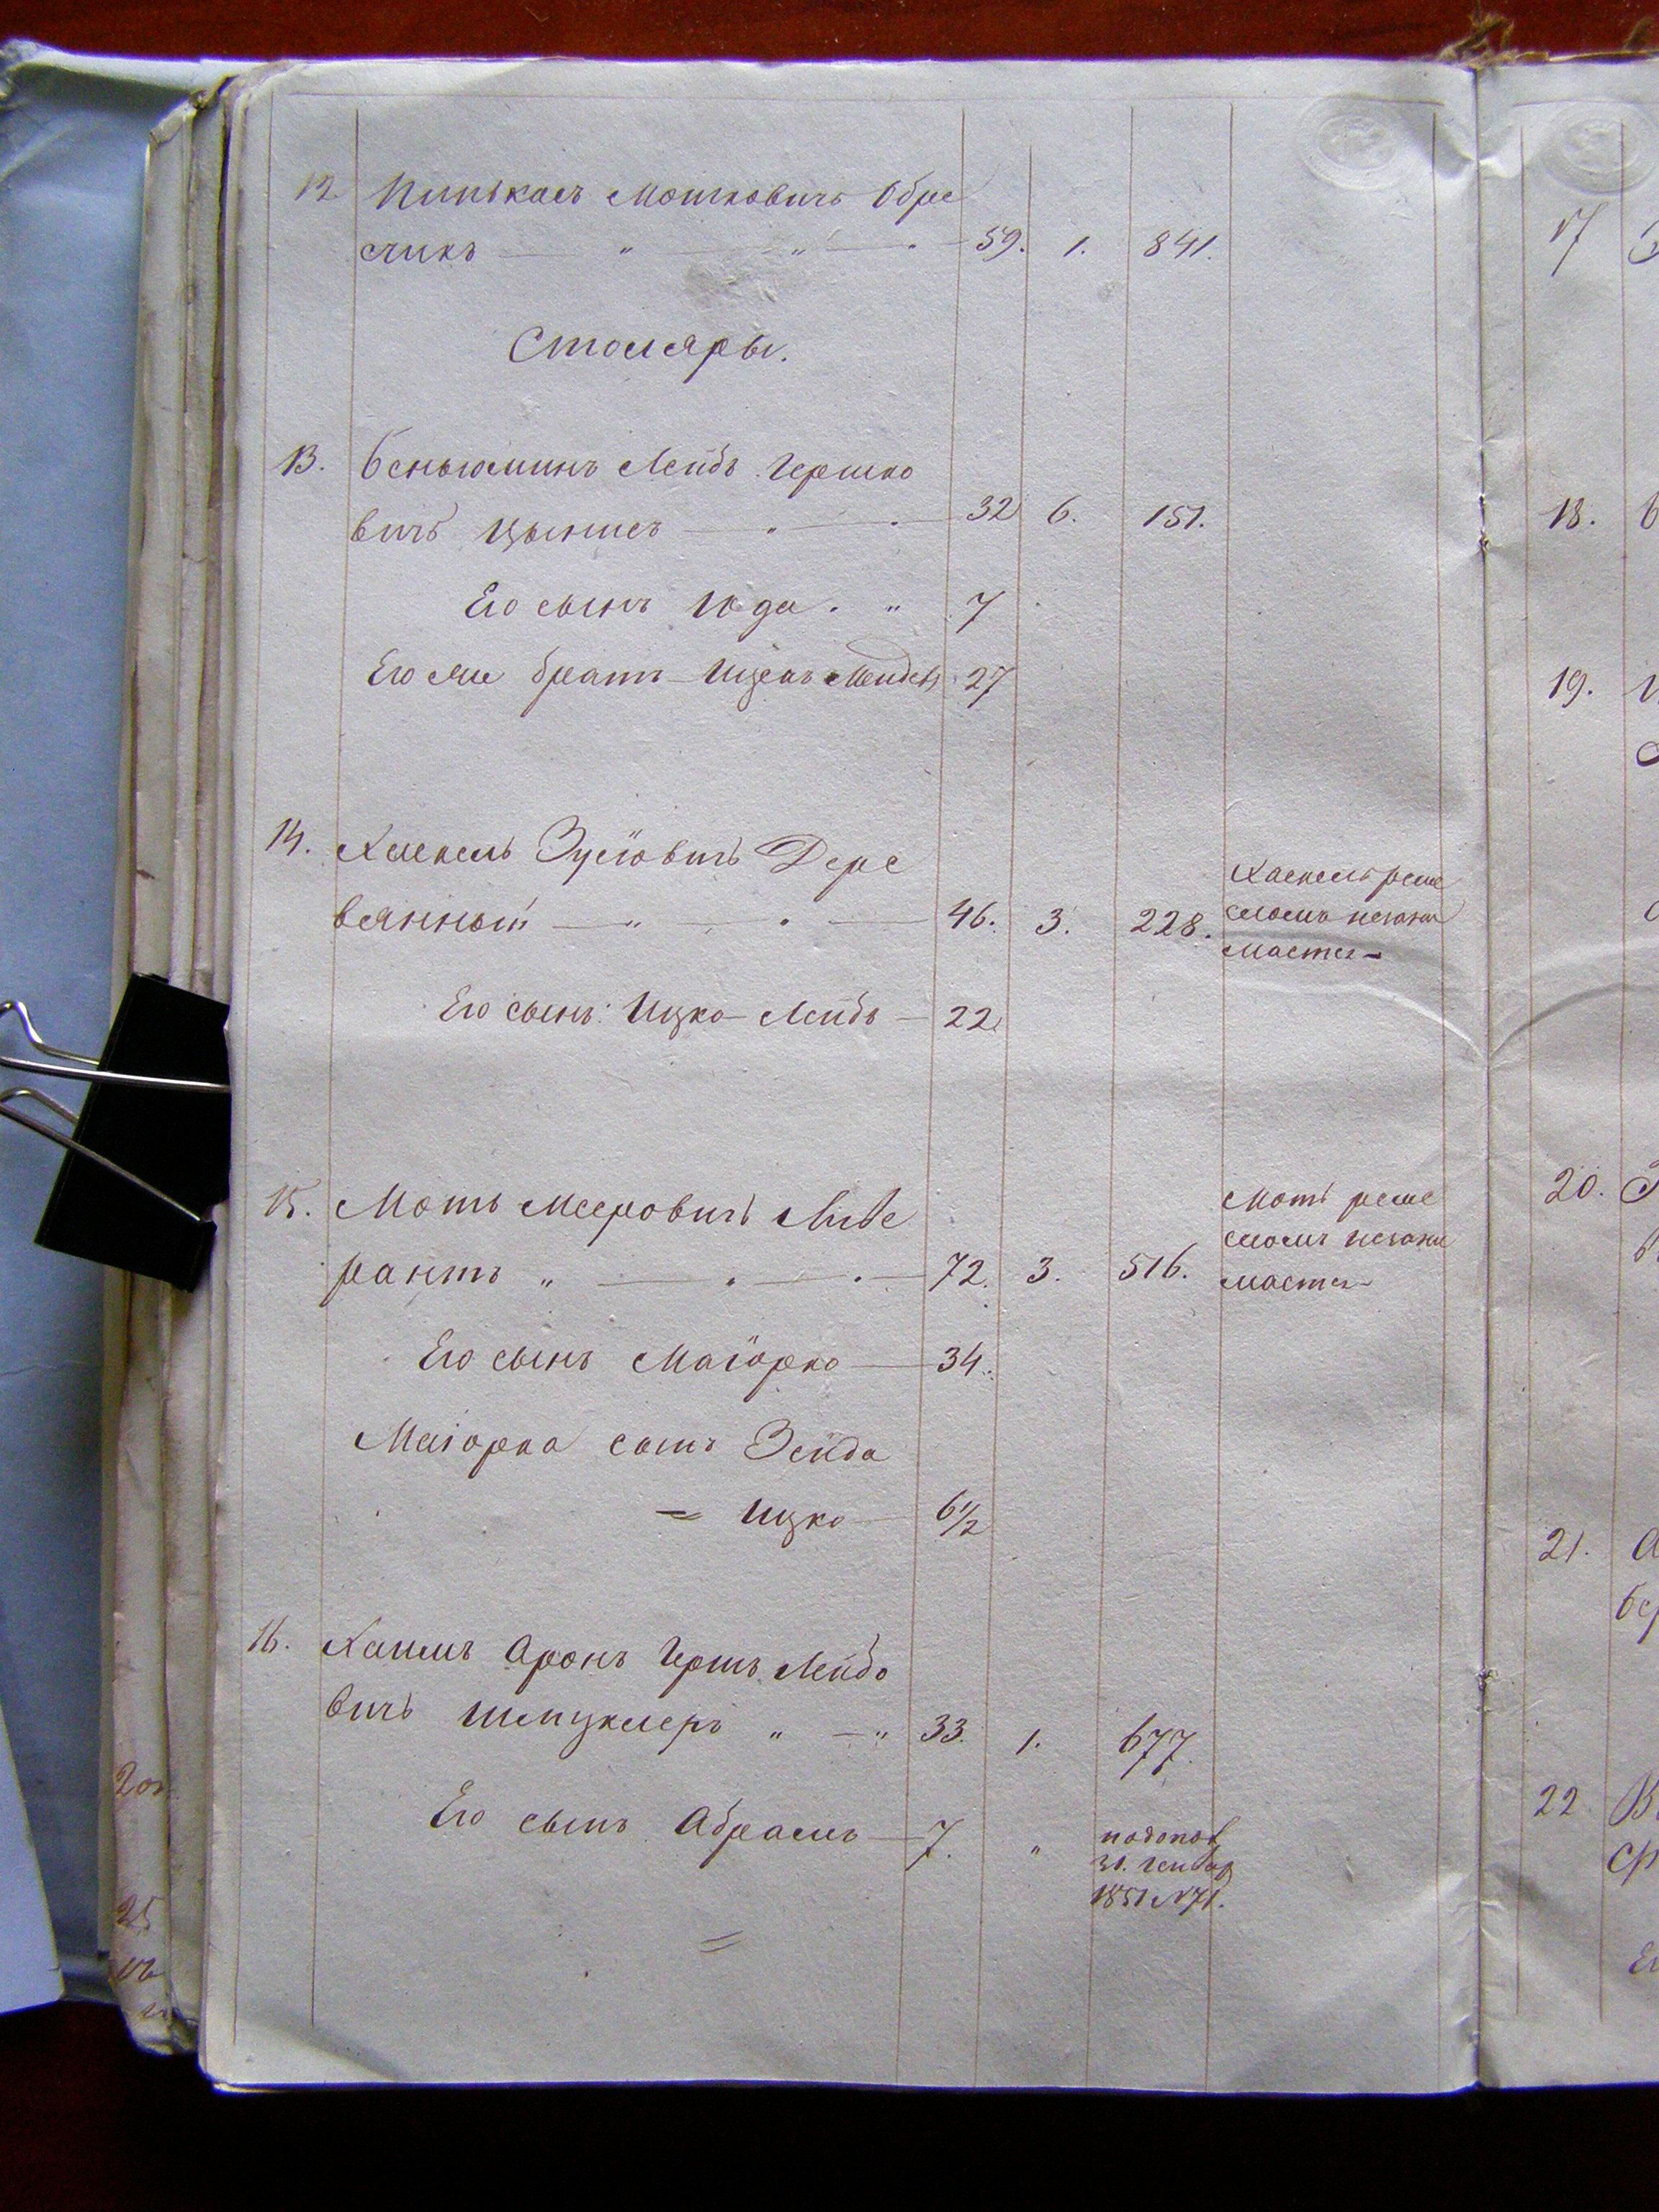 12. Пинькасъ Мошковичъ Обре
счикъ — " — " — " — 59. 1. 841.
Столяры.
13. Беньюминъ Лейбъ Гершко
вичъ Цыммеръ — " — " — 32 6. 151.
Его сынъ Юда. " 7
Его же братъ Ицекъ Мендель 27
14. Хаскель Зусіовичъ Дере
вянный — " — " — 46. 3. 228.
Хаскель реме
сломъ незани
мается
Его сынъ Ицко Лейбъ — 22
15. Моть МееровичъЛиве
рантъ " — " — " — 72. 3. 516.
Моть реме
сломъ незани
мается
Его сынъ Маіорко — 34.
Маіорка сынъ Зейда
= Ицко — 6 1/2
16. Хаимъ Аронъ Гершъ Лейбо
вичъ " — " 33. 1. 677.
Его сынъ Абрамъ — 7. "
подопол
31. Генвар
1851 №71.
17
18.
19.
20.
21.
22
25